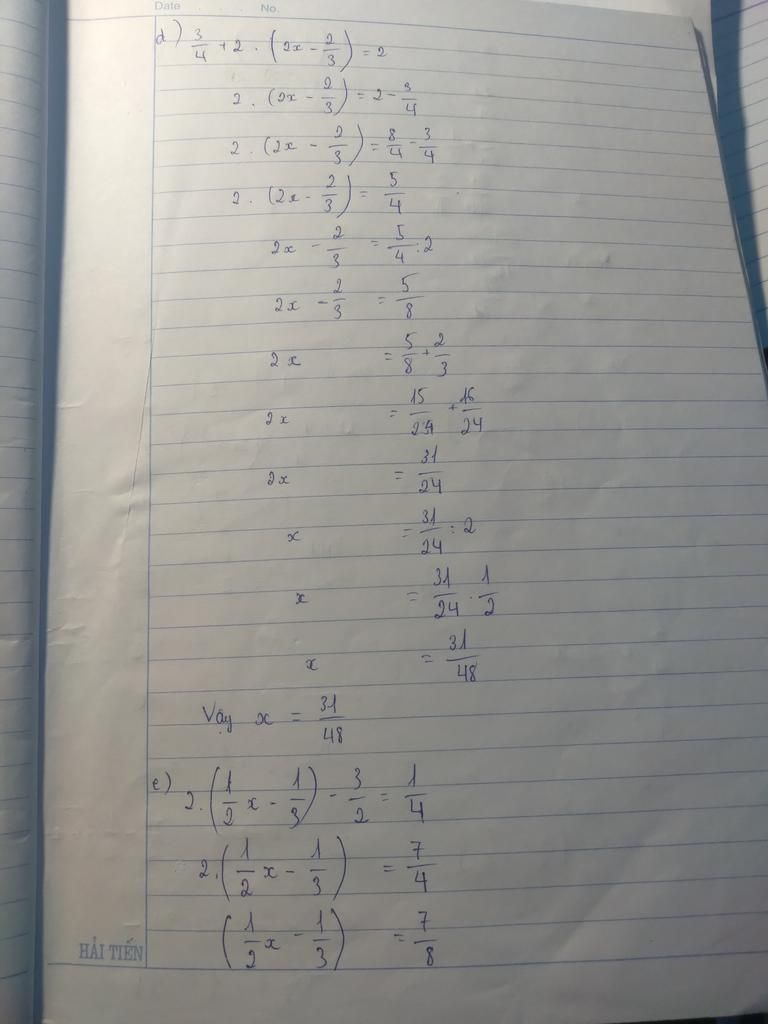 Date . . . . No.
d) 3/4 + 2 . (2x - 2/3) = 2
2 . (2x - 2/3) = 2 - 3/4
2 . (2x - 2/3) = 8/4 - 3/4
2 . (2x - 2/3) = 5/4
2x - 2/3 = 5/4 : 2
2x - 2/3 = 5/8
2x = 5/8 + 2/3
2x = 15/24 + 16/24
2x = 31/24
x = 31/24 : 2
x = 31/24 . 1/2
x = 31/48
Vậy x = 31/48
e) 2. (1/2 x - 1/3) - 3/2 = 1/4
2. (1/2 x - 1/3) = 7/4
(1/2 x - 1/3) = 7/8
HẢI TIẾN